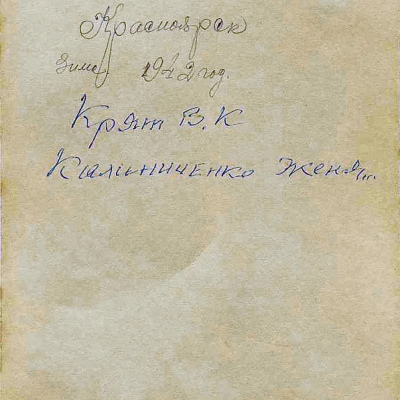 Красноярск
Зима 1942 год.
Крят В.К
Кальниченко Женя